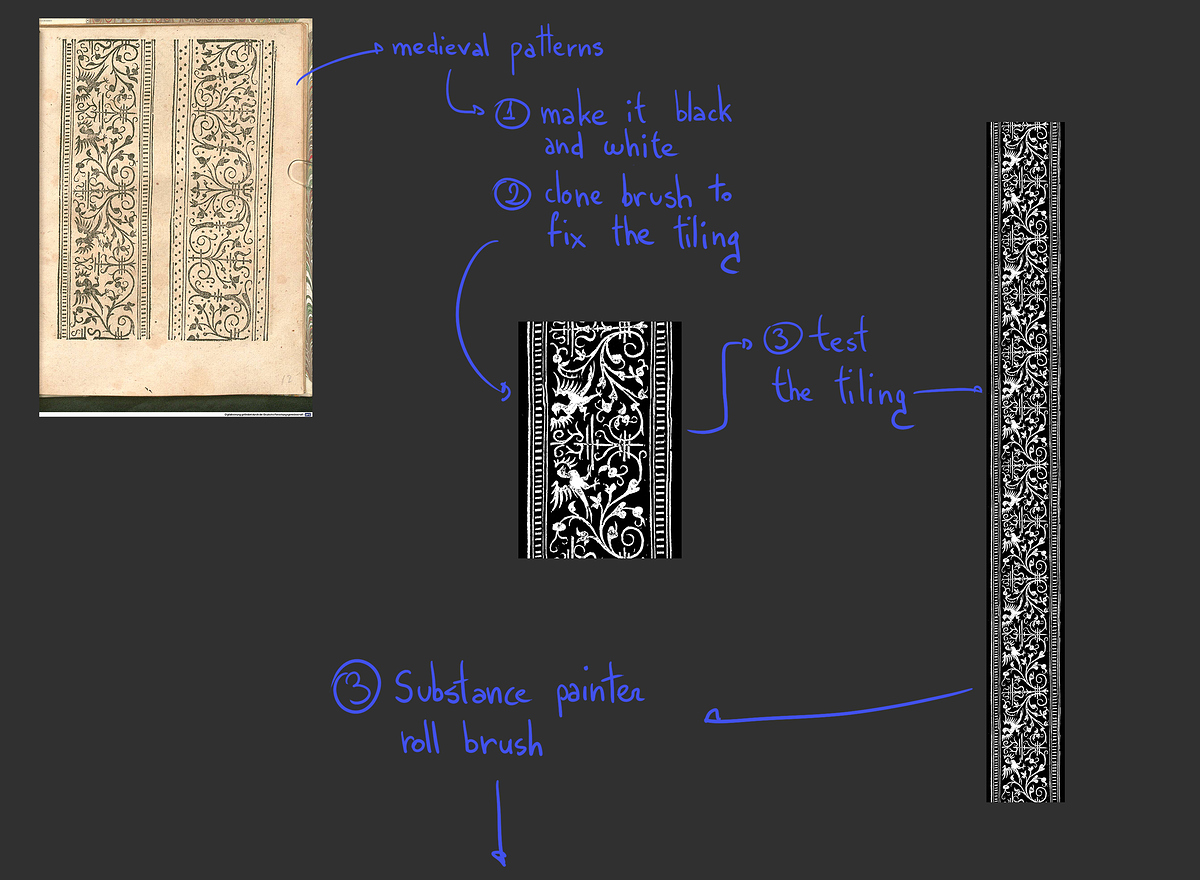 medieval patterns
① make it black
and white
② clone brush to
fix the tiling
③ test
the tiling
③ Substance painter
roll brush
12